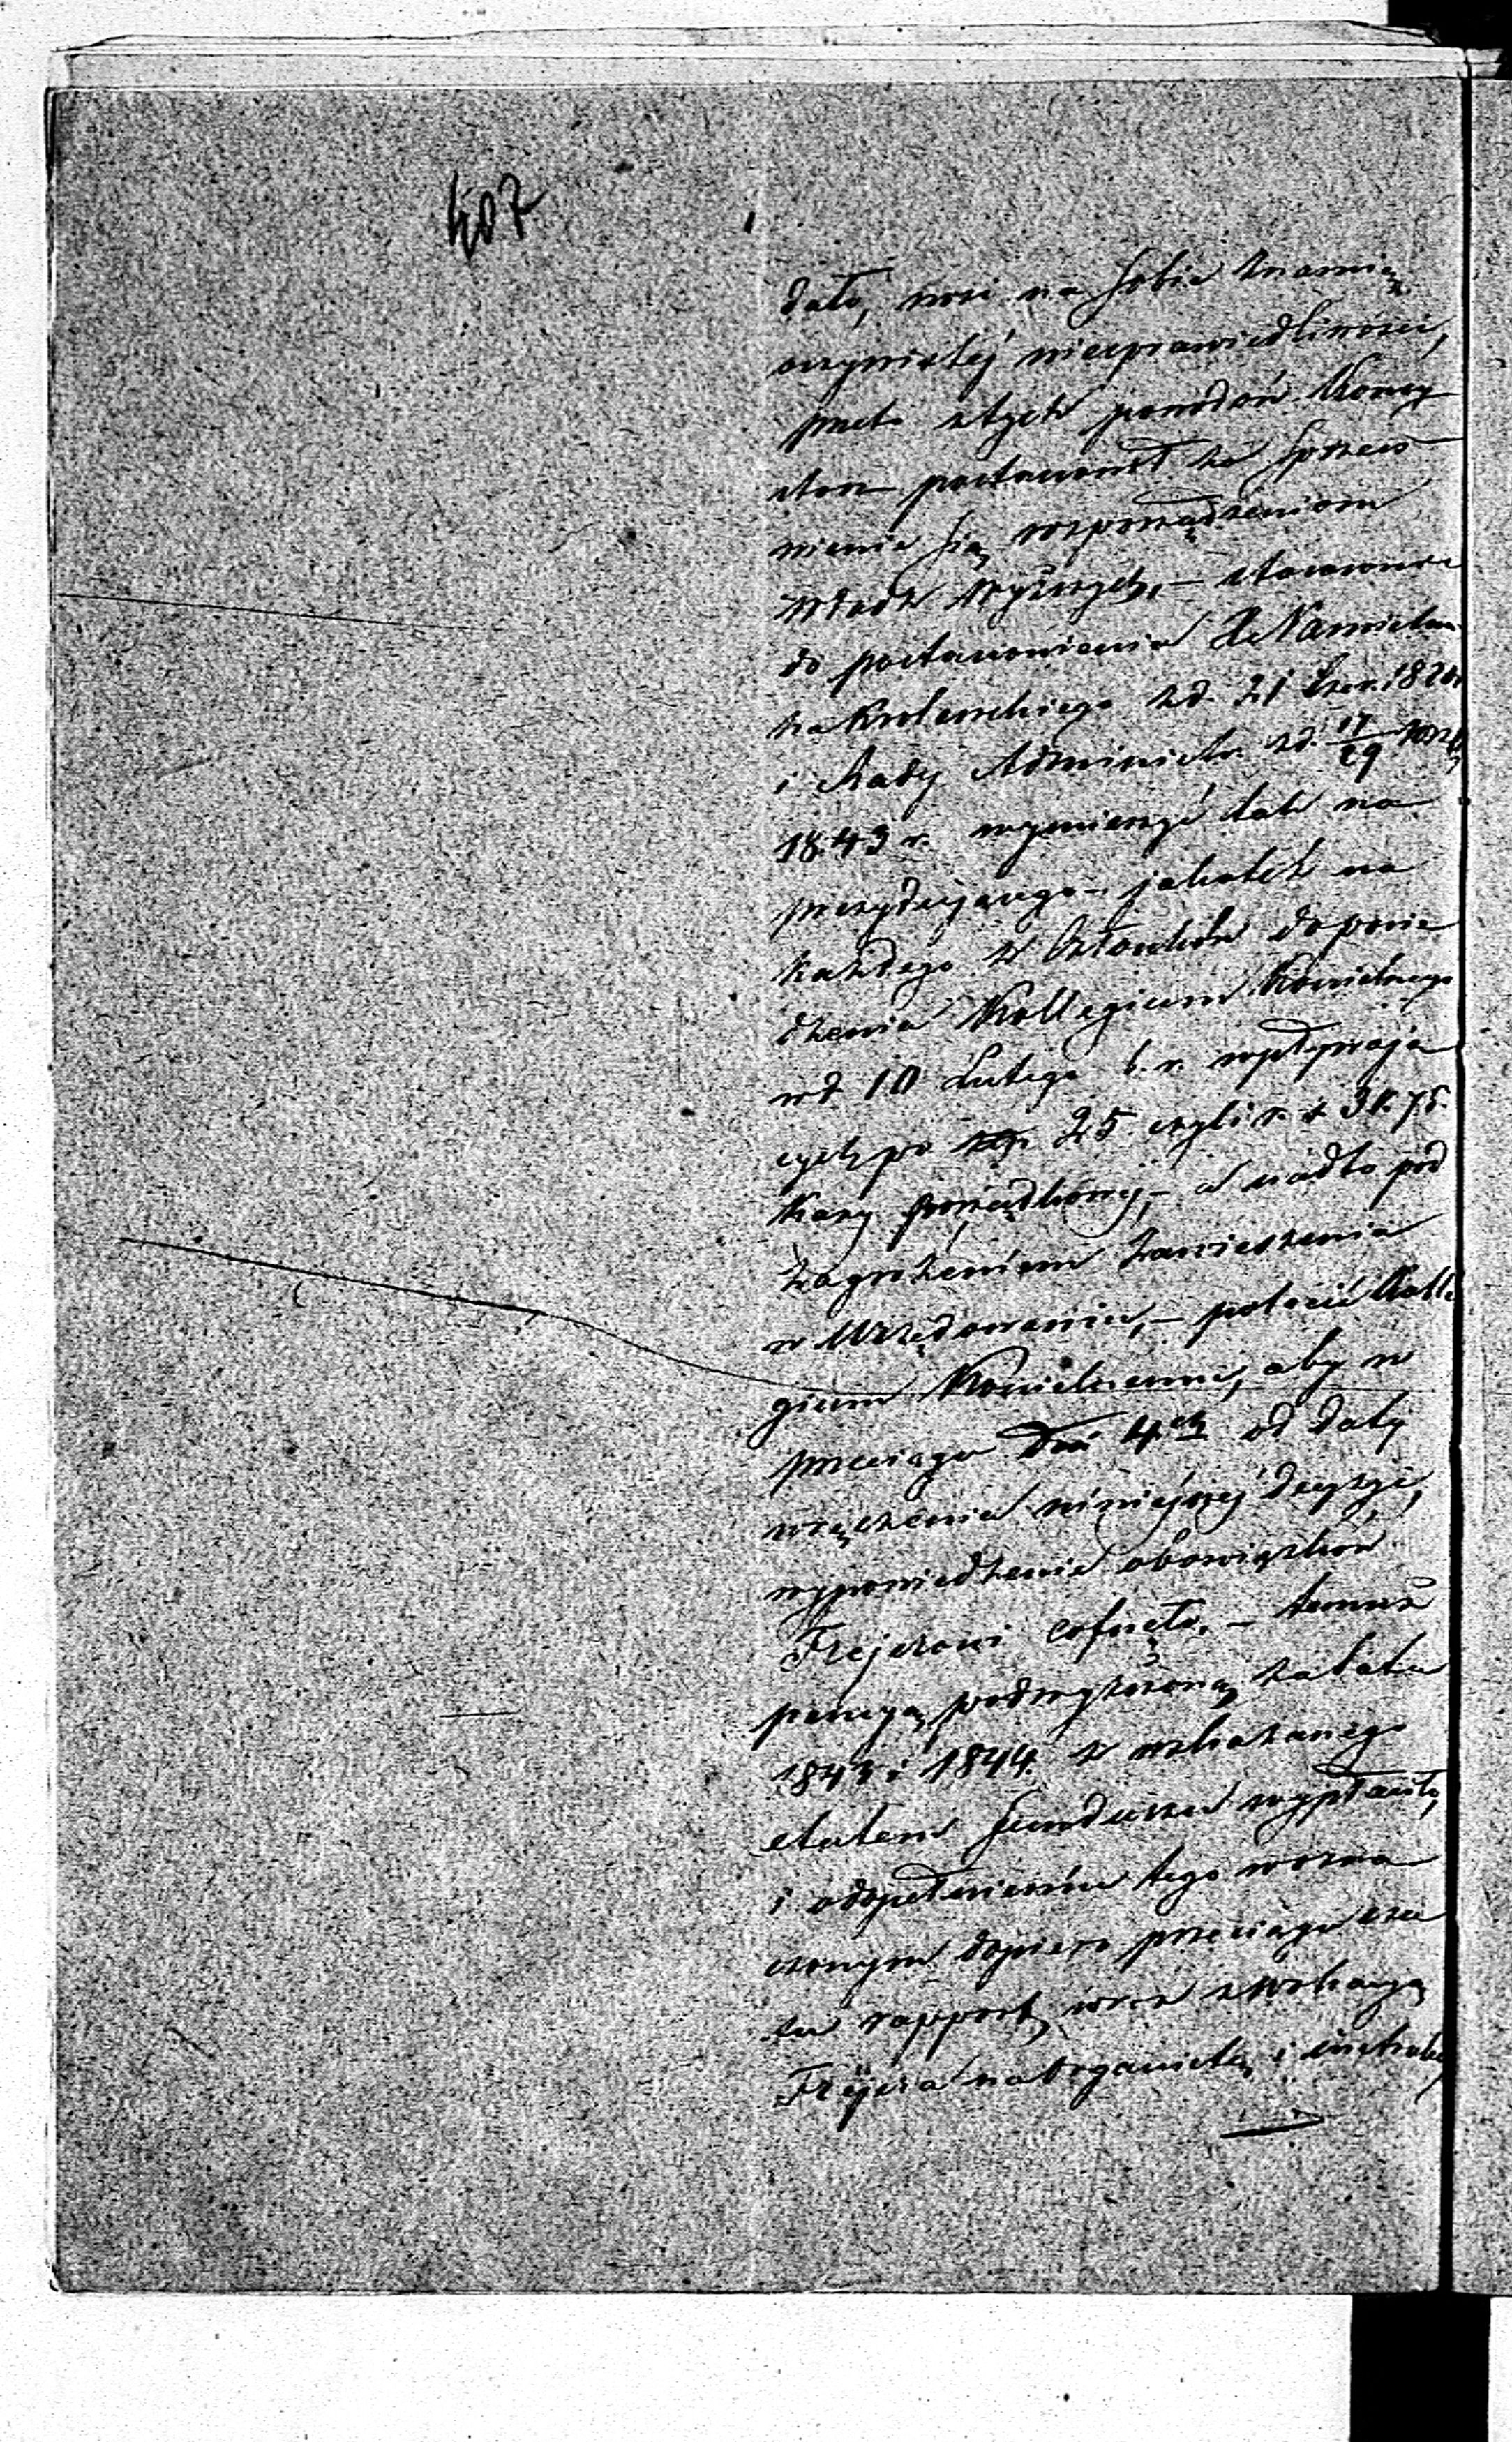 407
dało, nosi na sobie znamię
oczywistéj niesprawiedliwości,
przeto z tych powodów Konsy
storz postanowił za sprzeci
wienie się rozporządzeniom
Władz wyższych, – stosownie
do postanowienia X. Namiestni
ka Królewskiego z d. 21
i Rady Administr. z d. 17/29
1843 r. wymierzyć tak na
prezydującego – jakotéż na
każdego z Członków do posie
dzenia Kollegium Kościelnego
w d. 10 Lutego b. r. wpływają
cych po 25 czyli r. s. 3 k. 75.
kary porządkowéj, – a nadto pod
zagrożeniem zawieszenia
w Urzędowaniu, – polecić Kolle
gium Kościelnemu, aby w
przeciągu Dni 4ch od daty
wręczenia niniejszéj decyzyi,
wypowiedzenie obowiązków
Frejerowi cofnęło, – temuż
pensyą podwyższoną za lata
1843 i 1844. z wskazanego
etatem funduszu wypłaciło,
i o dopełnieniu tego w ozna
czonym dopiero przeciągu cza
su rapport, wraz z wokacyą
Frejera na Organistę i